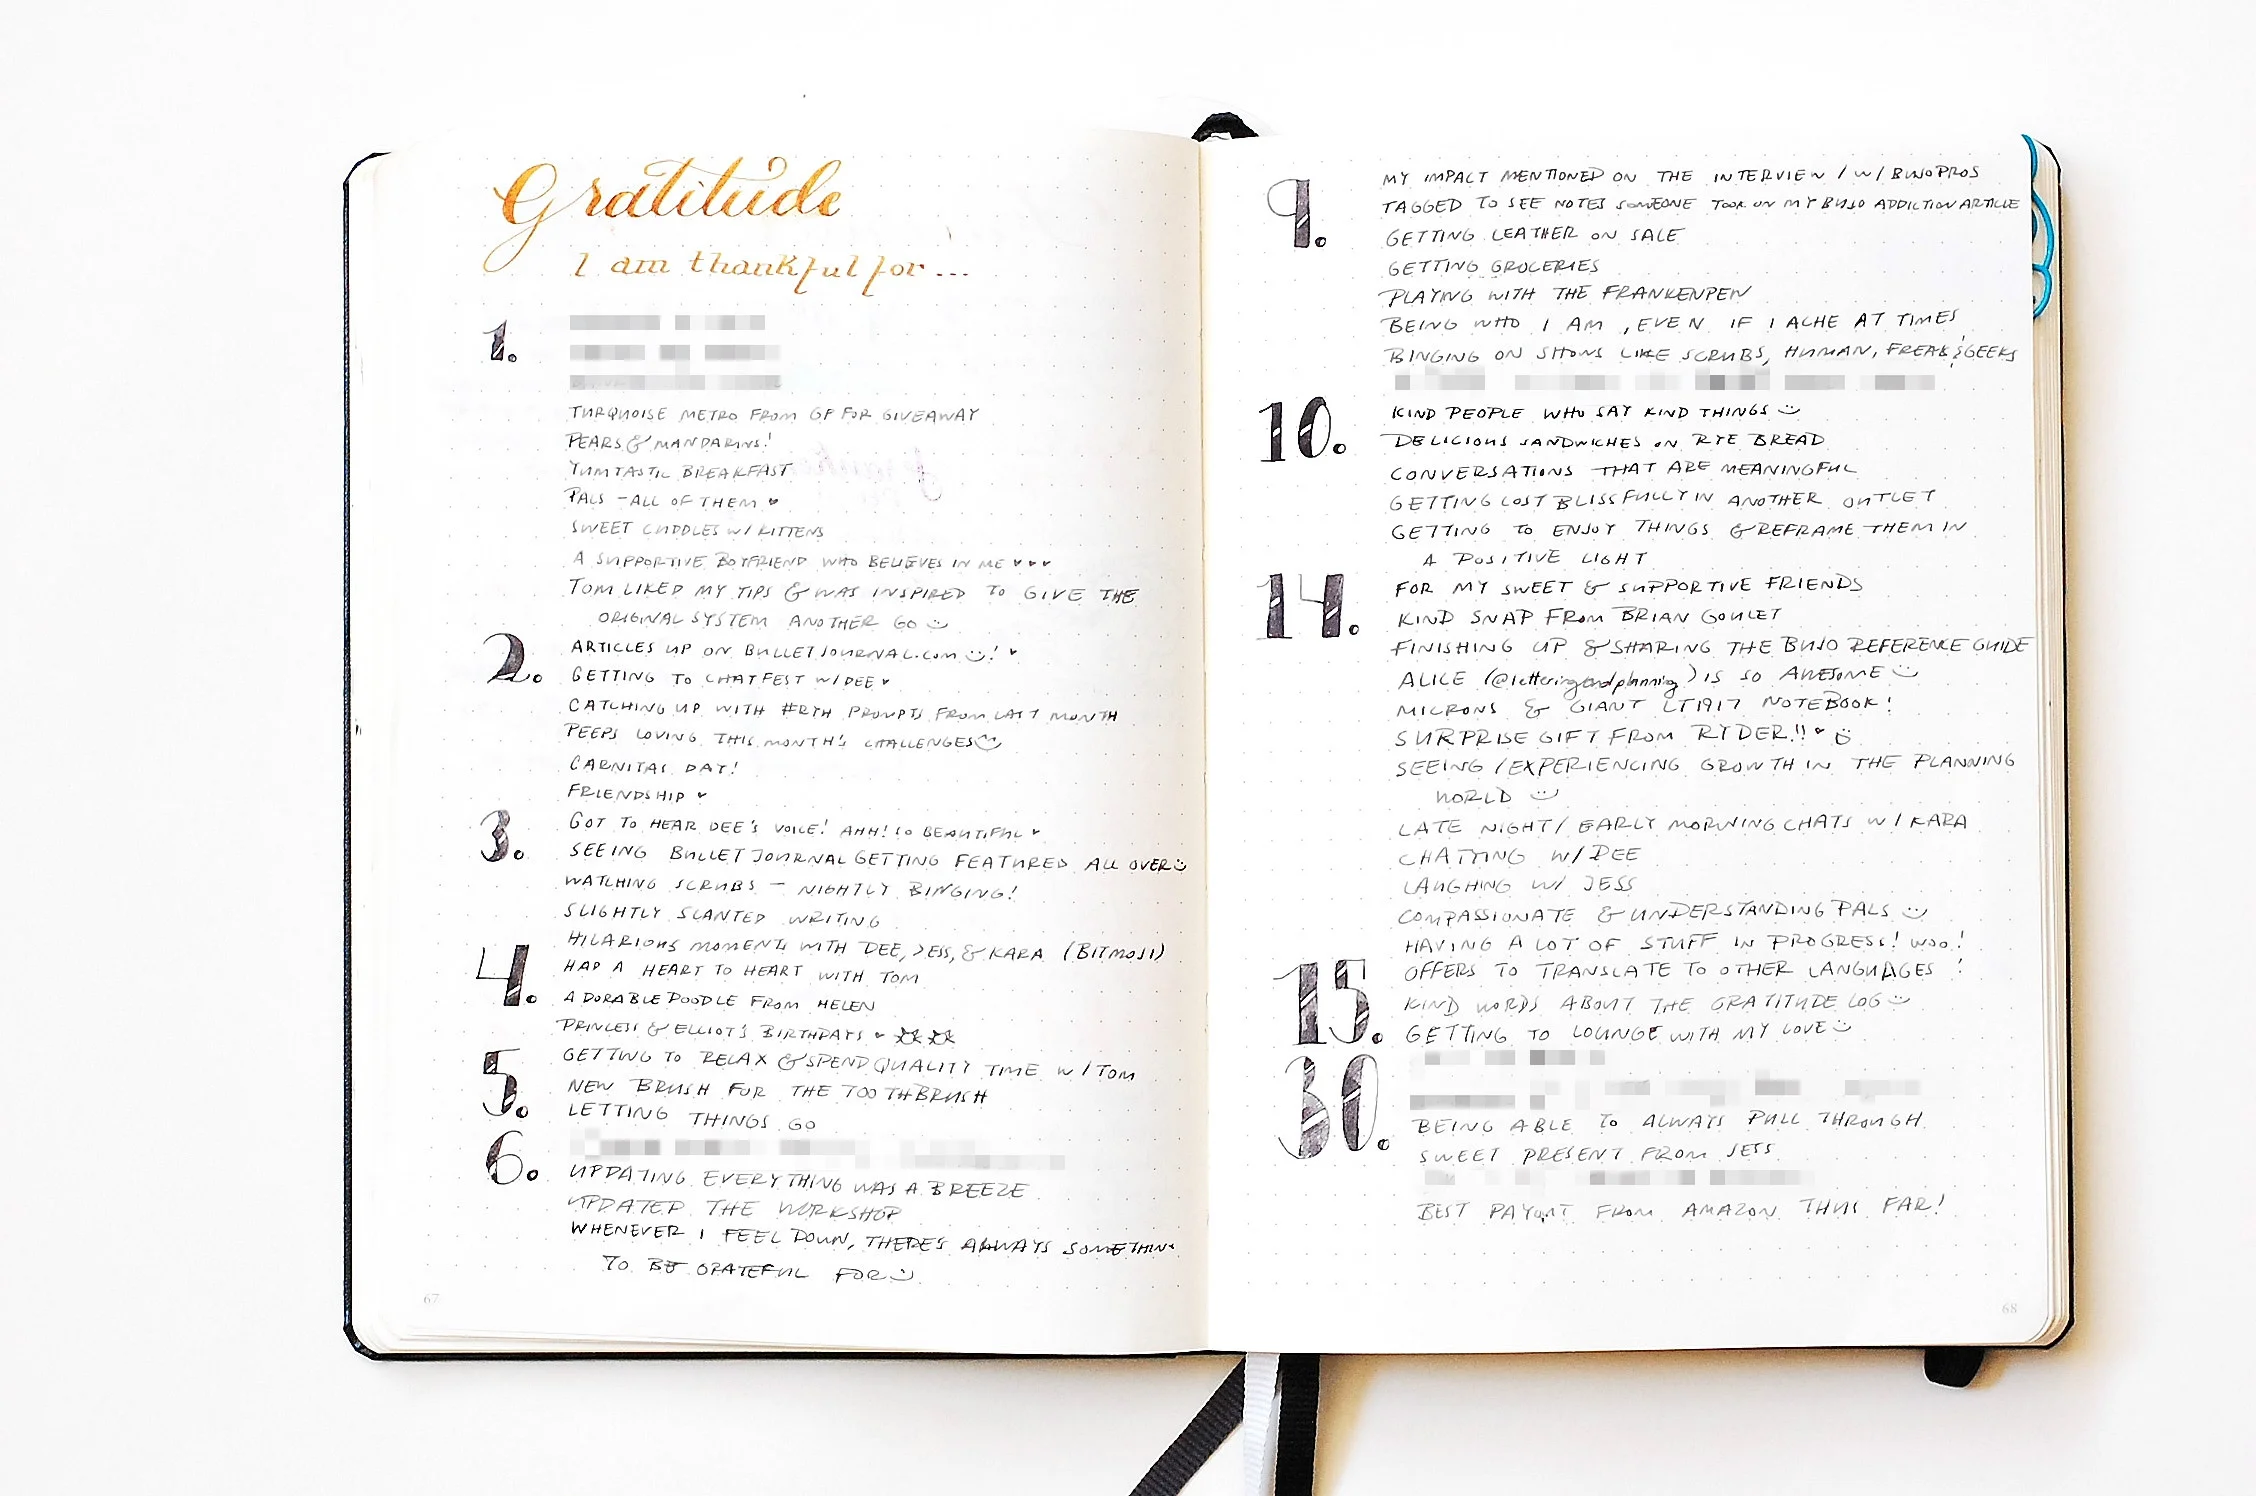 Gratitude
I am thankful for...
1.
TURQUOISE METRO FROM GP FOR GIVEAWAY
PEARS & MANDARINS!
YUMTASTIC BREAKFAST
PALS - ALL OF THEM ♥
SWEET CUDDLES W/ KITTENS
A SUPPORTIVE BOYFRIEND WHO BELIEVES IN ME ♥♥♥
TOM LIKED MY TIPS & WAS INSPIRED TO GIVE THE
ORIGINAL SYSTEM ANOTHER GO
2.
ARTICLES UP ON BULLETJOURNAL.COM ! ♥
GETTING TO CHATFEST W/ DEE ♥
CATCHING UP WITH #RTH PROMPTS FROM LAST MONTH
PEEPS LOVING THIS MONTH'S CHALLENGES
CARNITAS DAY!
FRIENDSHIP ♥
3.
GOT TO HEAR DEE'S VOICE! AHH! SO BEAUTIFUL ♥
SEEING BULLET JOURNAL GETTING FEATURED ALL OVER
WATCHING SCRUBS - NIGHTLY BINGING!
SLIGHTLY SLANTED WRITING
HILARIOUS MOMENTS WITH DEE, JESS, & KARA (BITMOJI)
4.
HAD A HEART TO HEART WITH TOM
ADORABLE DOODLE FROM HELEN
PRINCESS & ELLIOT'S BIRTHDAYS ♥
5.
GETTING TO RELAX & SPEND QUALITY TIME W/ TOM
NEW BRUSH FOR THE TOOTHBRUSH
LETTING THINGS GO
6.
UPDATING EVERYTHING WAS A BREEZE
UPDATED THE WORKSHOP
WHENEVER I FEEL DOWN, THERE'S ALWAYS SOMETHING
TO BE GRATEFUL FOR
67
9.
MY IMPACT MENTIONED ON THE INTERVIEW / W/ BUJOPROS
TAGGED TO SEE NOTES SOMEONE TOOK ON MY BUJO ADDICTION ARTICLE
GETTING LEATHER ON SALE
GETTING GROCERIES
PLAYING WITH THE FRANKENPEN
BEING WHO I AM, EVEN IF I ACHE AT TIMES
BINGING ON SHOWS LIKE SCRUBS, HUMAN, FREAKS & GEEKS
10.
KIND PEOPLE WHO SAY KIND THINGS
DELICIOUS SANDWICHES ON RYE BREAD
CONVERSATIONS THAT ARE MEANINGFUL
GETTING LOST BLISSFULLY IN ANOTHER OUTLET
GETTING TO ENJOY THINGS & REFRAME THEM IN
A POSITIVE LIGHT
14.
FOR MY SWEET & SUPPORTIVE FRIENDS
KIND SNAP FROM BRIAN GOULET
FINISHING UP & SHARING THE BUJO REFERENCE GUIDE
ALICE (@letteringandplanning) IS SO AWESOME
MICRONS & GIANT LT1917 NOTEBOOK!
SURPRISE GIFT FROM RYDER!! ♥
SEEING / EXPERIENCING GROWTH IN THE PLANNING
WORLD
LATE NIGHT / EARLY MORNING CHATS W/ KARA
CHATTING W/ DEE
LAUGHING W/ JESS
COMPASSIONATE & UNDERSTANDING PALS
HAVING A LOT OF STUFF IN PROGRESS! WOO!
15.
OFFERS TO TRANSLATE TO OTHER LANGUAGES!
KIND WORDS ABOUT THE GRATITUDE LOG
GETTING TO LOUNGE WITH MY LOVE
30.
BEING ABLE TO ALWAYS PULL THROUGH
SWEET PRESENT FROM JESS
BEST PAYOUT FROM AMAZON THUS FAR!
68